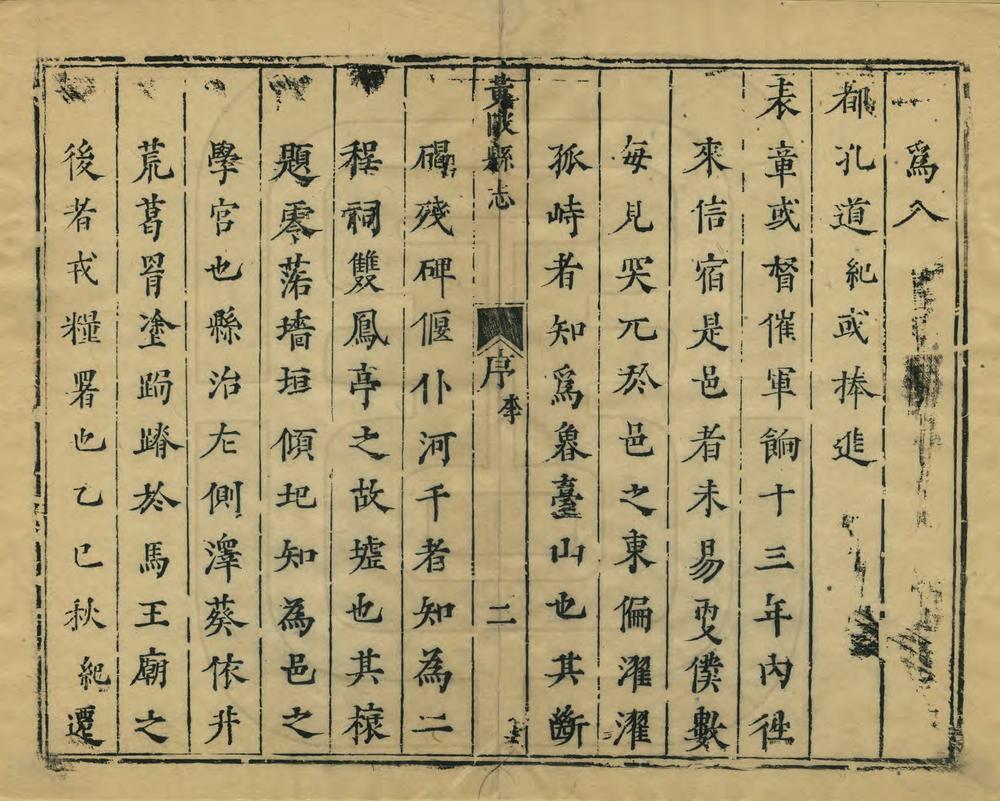 爲入
都孔道紀或捧進
表章或督催軍餉十三年內徃
來信宿是邑者未易更僕數
每見突兀於邑之東偏濯濯
孤峙者知爲魯臺山也其斷
黃陂縣志 序 李 二
碣殘碑偃仆河干者知為二
程祠雙鳳亭之故墟也其榱
題零落墻垣傾圮知為邑之
學宮也縣治左側澤葵依井
荒葛罥塗跼蹐於馬王廟之
後者戎糧署也乙巳秋紀遷